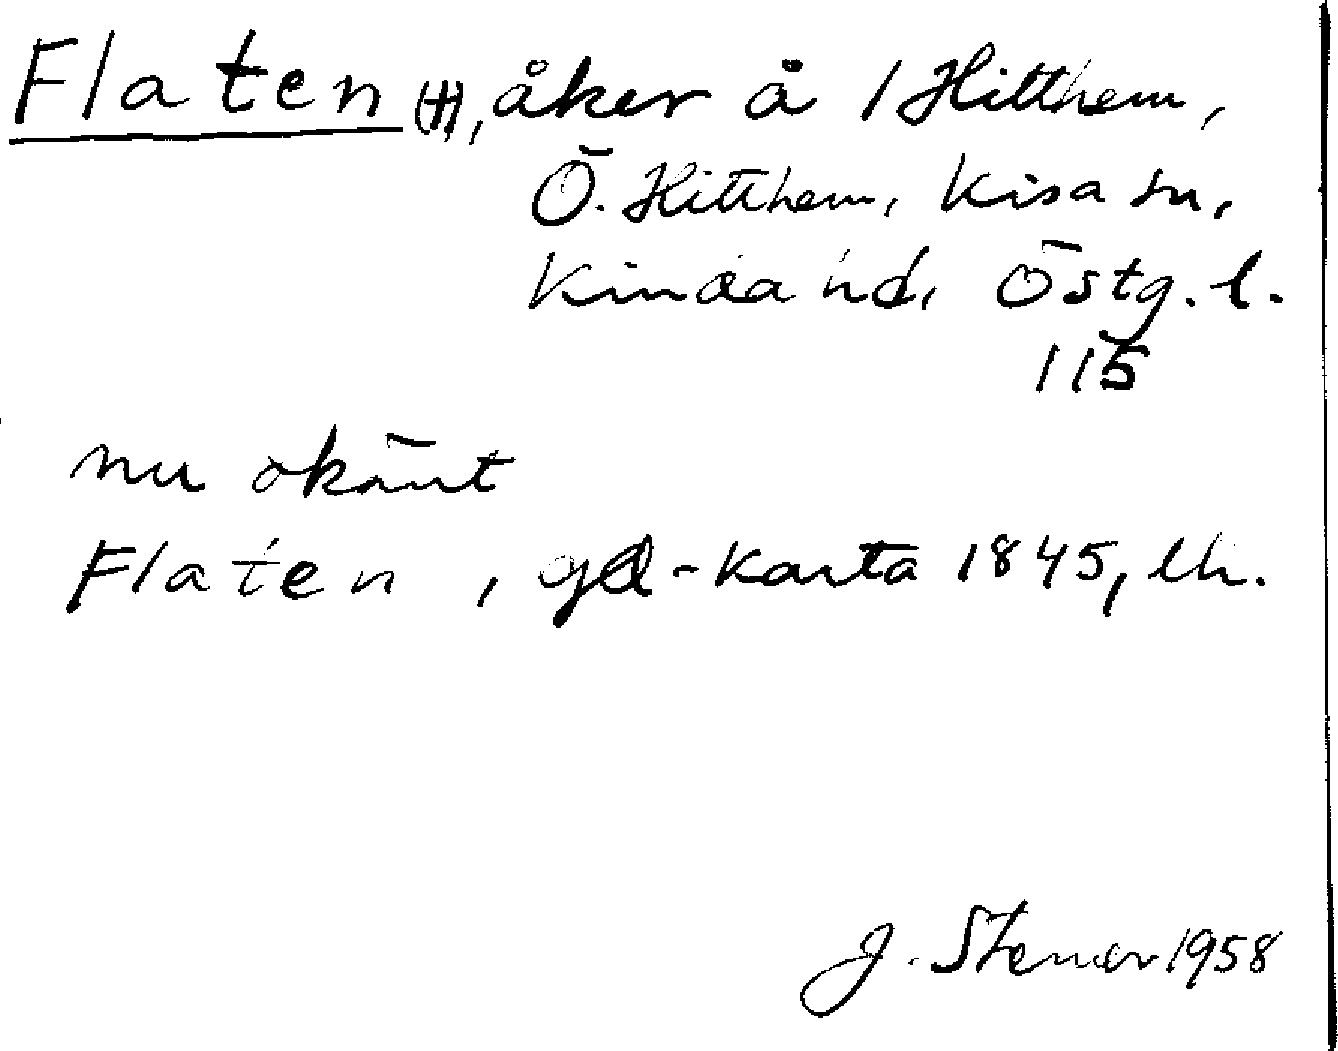 Flaten (†), åker å 1 Hitthem,
Ö. Hitthem, Kisa sn,
Kinda hd, Östg. l.
115
nu okänt
Flaten, -karta 1845, lh.
J. Stener 1958